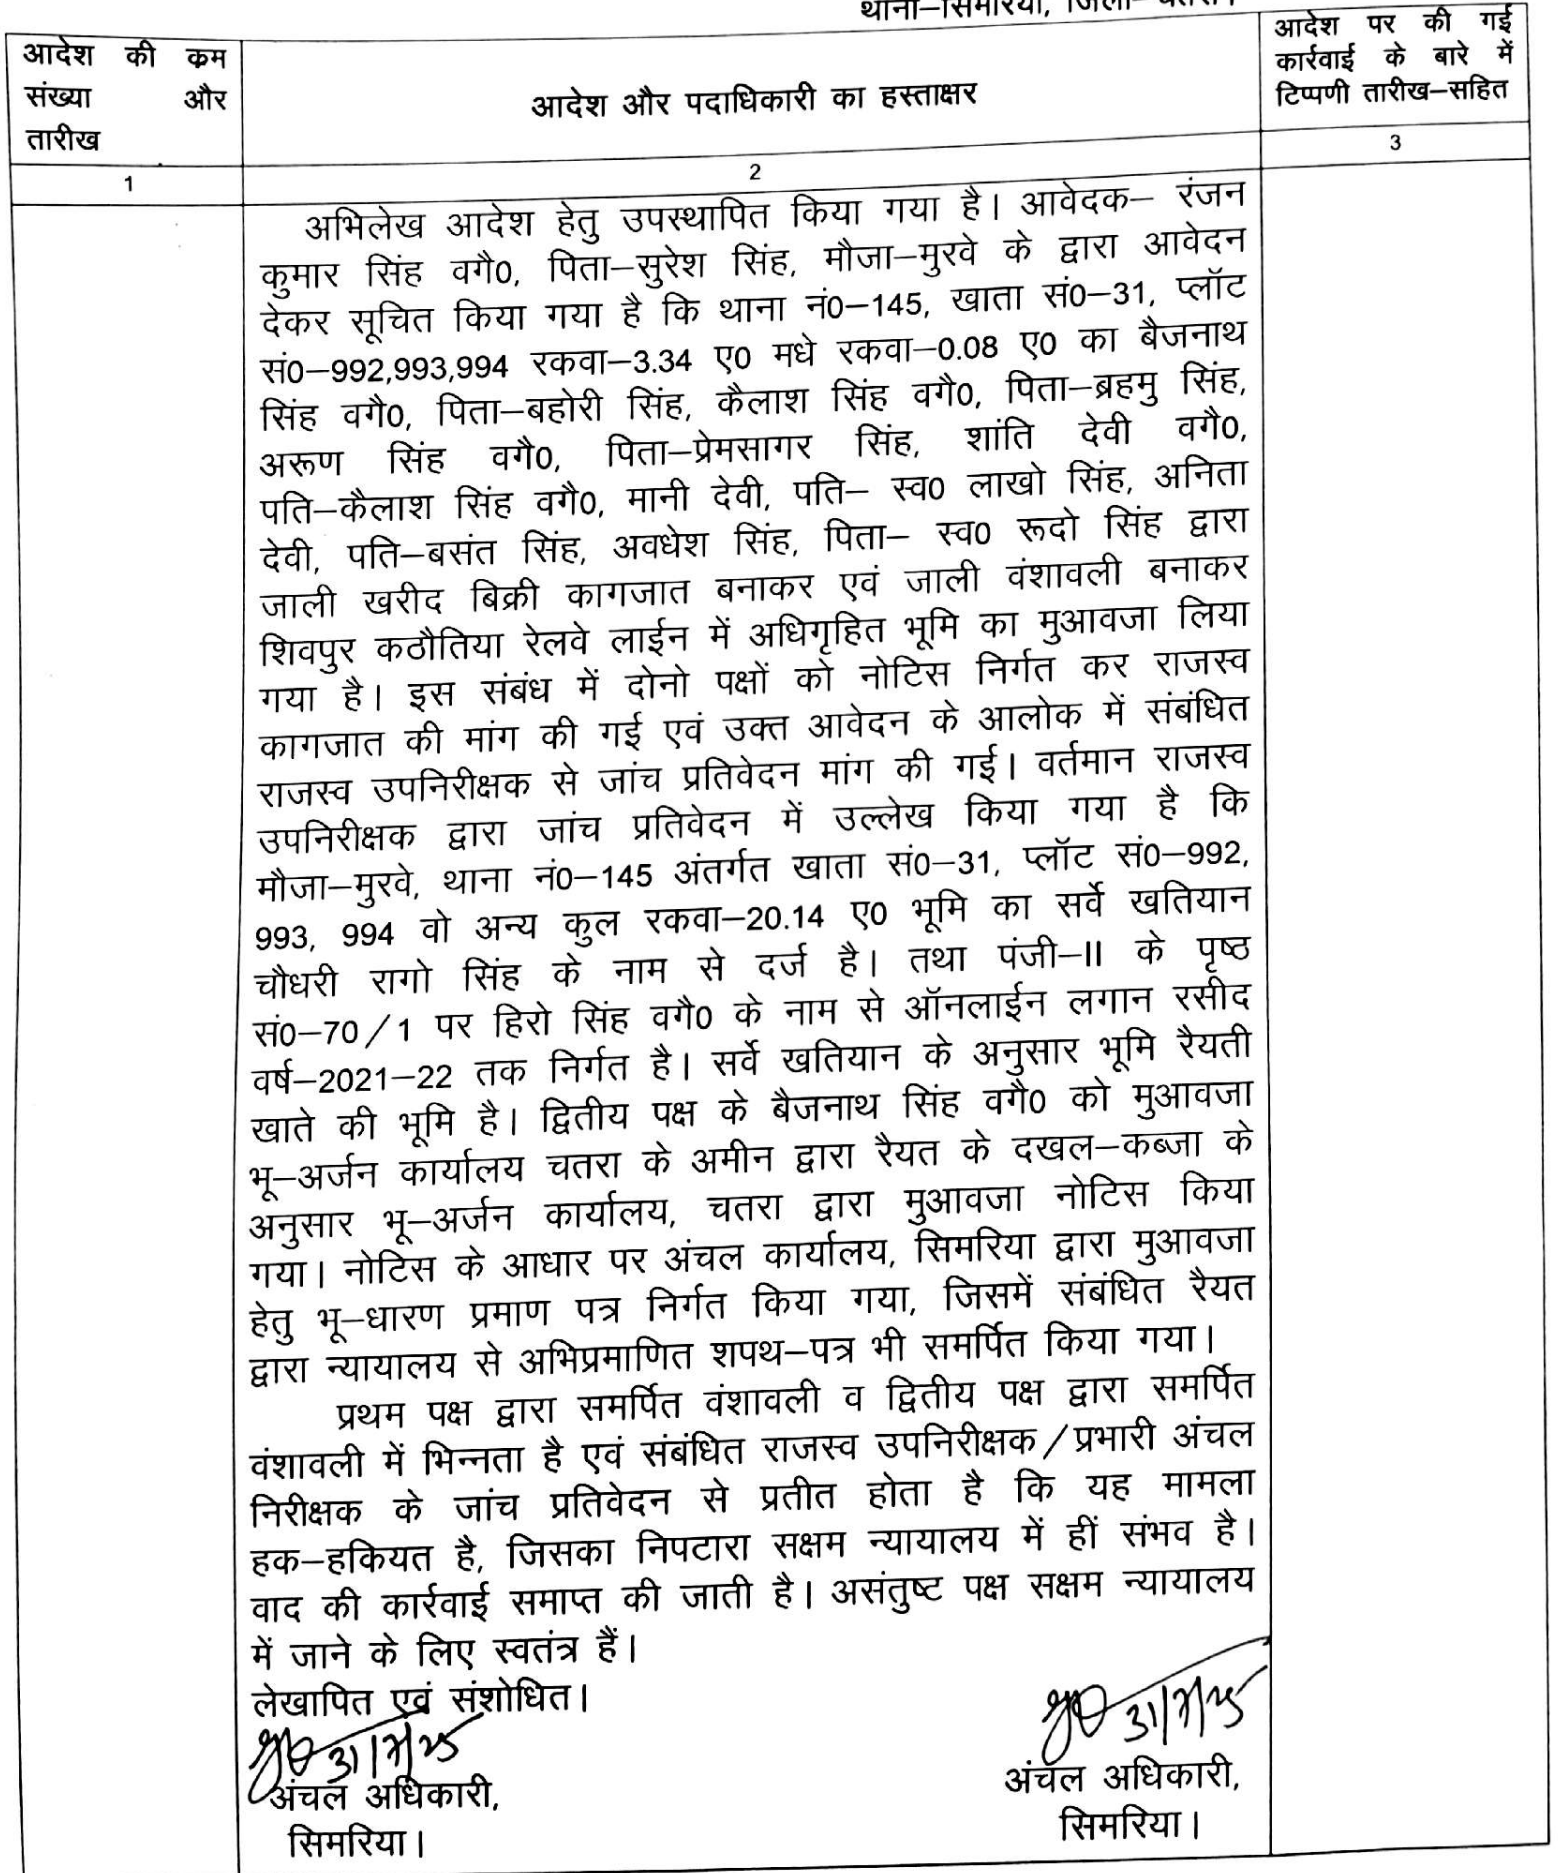 थाना–सिमरिया, जिला–चतरा।
आदेश की क्रम
संख्या और
तारीख
आदेश और पदाधिकारी का हस्ताक्षर
आदेश पर की गई
कार्रवाई के बारे में
टिप्पणी तारीख–सहित
1
2
3
अभिलेख आदेश हेतु उपस्थापित किया गया है। आवेदक– रंजन
कुमार सिंह वगै0, पिता–सुरेश सिंह, मौजा–मुरवे के द्वारा आवेदन
देकर सूचित किया गया है कि थाना नं0–145, खाता सं0–31, प्लॉट
सं0–992,993,994 रकवा–3.34 ए0 मधे रकवा–0.08 ए0 का बैजनाथ
सिंह वगै0, पिता–बहोरी सिंह, कैलाश सिंह वगै0, पिता–ब्रहमु सिंह,
अरूण सिंह वगै0, पिता–प्रेमसागर सिंह, शांति देवी वगै0,
पति–कैलाश सिंह वगै0, मानी देवी, पति– स्व0 लाखो सिंह, अनिता
देवी, पति–बसंत सिंह, अवधेश सिंह, पिता– स्व0 रूदो सिंह द्वारा
जाली खरीद बिक्री कागजात बनाकर एवं जाली वंशावली बनाकर
शिवपुर कठौतिया रेलवे लाईन में अधिगृहित भूमि का मुआवजा लिया
गया है। इस संबंध में दोनो पक्षों को नोटिस निर्गत कर राजस्व
कागजात की मांग की गई एवं उक्त आवेदन के आलोक में संबंधित
राजस्व उपनिरीक्षक से जांच प्रतिवेदन मांग की गई। वर्तमान राजस्व
उपनिरीक्षक द्वारा जांच प्रतिवेदन में उल्लेख किया गया है कि
मौजा–मुरवे, थाना नं0–145 अंतर्गत खाता सं0–31, प्लॉट सं0–992,
993, 994 वो अन्य कुल रकवा–20.14 ए0 भूमि का सर्वे खतियान
चौधरी रागो सिंह के नाम से दर्ज है। तथा पंजी–II के पृष्ठ
सं0–70/1 पर हिरो सिंह वगै0 के नाम से ऑनलाईन लगान रसीद
वर्ष–2021–22 तक निर्गत है। सर्वे खतियान के अनुसार भूमि रैयती
खाते की भूमि है। द्वितीय पक्ष के बैजनाथ सिंह वगै0 को मुआवजा
भू–अर्जन कार्यालय चतरा के अमीन द्वारा रैयत के दखल–कब्जा के
अनुसार भू–अर्जन कार्यालय, चतरा द्वारा मुआवजा नोटिस किया
गया। नोटिस के आधार पर अंचल कार्यालय, सिमरिया द्वारा मुआवजा
हेतु भू–धारण प्रमाण पत्र निर्गत किया गया, जिसमें संबंधित रैयत
द्वारा न्यायालय से अभिप्रमाणित शपथ–पत्र भी समर्पित किया गया।
प्रथम पक्ष द्वारा समर्पित वंशावली व द्वितीय पक्ष द्वारा समर्पित
वंशावली में भिन्नता है एवं संबंधित राजस्व उपनिरीक्षक/प्रभारी अंचल
निरीक्षक के जांच प्रतिवेदन से प्रतीत होता है कि यह मामला
हक–हकियत है, जिसका निपटारा सक्षम न्यायालय में हीं संभव है।
वाद की कार्रवाई समाप्त की जाती है। असंतुष्ट पक्ष सक्षम न्यायालय
में जाने के लिए स्वतंत्र हैं।
लेखापित एवं संशोधित।
31/7/25
अंचल अधिकारी,
सिमरिया।
31/7/25
अंचल अधिकारी,
सिमरिया।